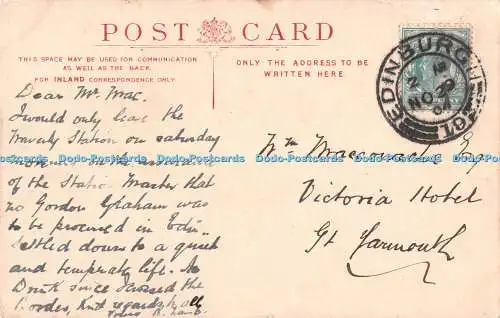 POST CARD
THIS SPACE MAY BE USED FOR COMMUNICATION
AS WELL AS THE BACK.
FOR INLAND CORRESPONDENCE ONLY.
ONLY THE ADDRESS TO BE
WRITTEN HERE.
EDINBURGH
NO
Dear Mr Mac.
I would only leave the
Waverly Station on Saturday
on the assurance
of the Station Master that
no Gordon Graham was
to be procured in Edin.
Settled down to a quiet
and temperate life. No
Drink since I crossed the
Border, Kind regards to all
Yours
Wm Macquarie Esq
Victoria Hotel
Gt Yarmouth
Dodo-Postcards Dodo-Postcards Dodo-Postcards Dodo-Postcards Dodo-Postcards